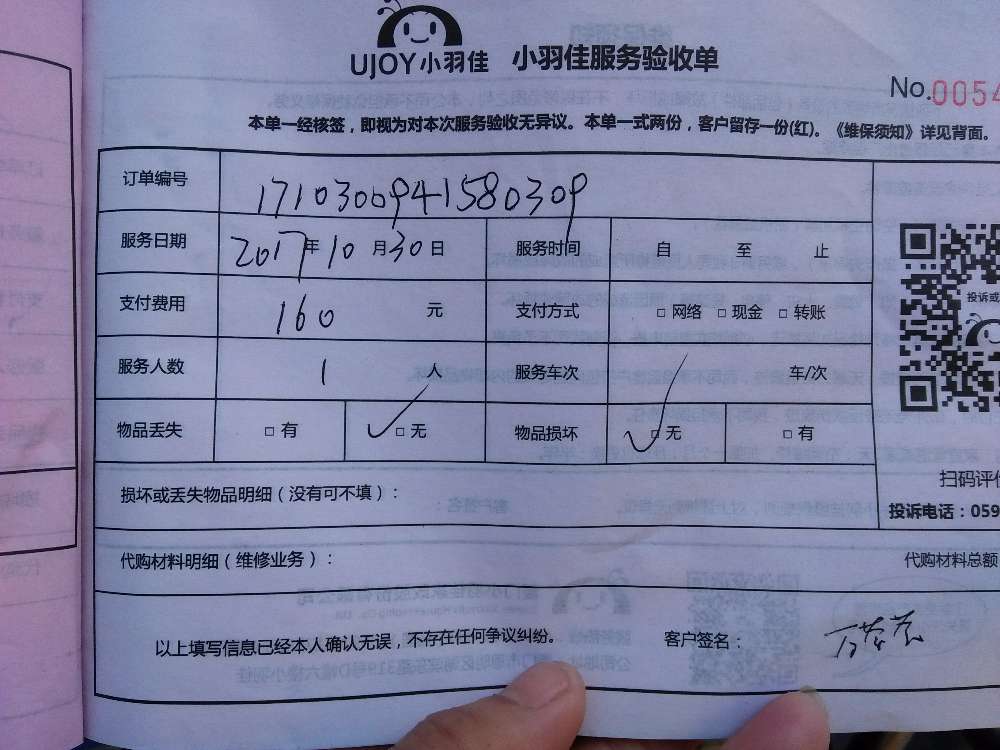 UJOY小羽佳 小羽佳服务验收单
No.0054
本单一经核签，即视为对本次服务验收无异议。本单一式两份，客户留存一份(红)。《维保须知》详见背面。
订单编号 1710300941580309
服务日期 2017年10月30日 服务时间 自 至 止
支付费用 160 元 支付方式 □ 网络 □ 现金 □ 转账
投诉或
服务人数 1 人 服务车次 车/次
物品丢失 □ 有 ✓□ 无 物品损坏 ✓□ 无 □ 有
扫码评价
损坏或丢失物品明细（没有可不填）：
投诉电话：059
代购材料明细（维修业务）： 代购材料总额
以上填写信息已经本人确认无误，不存在任何争议纠纷。 客户签名：